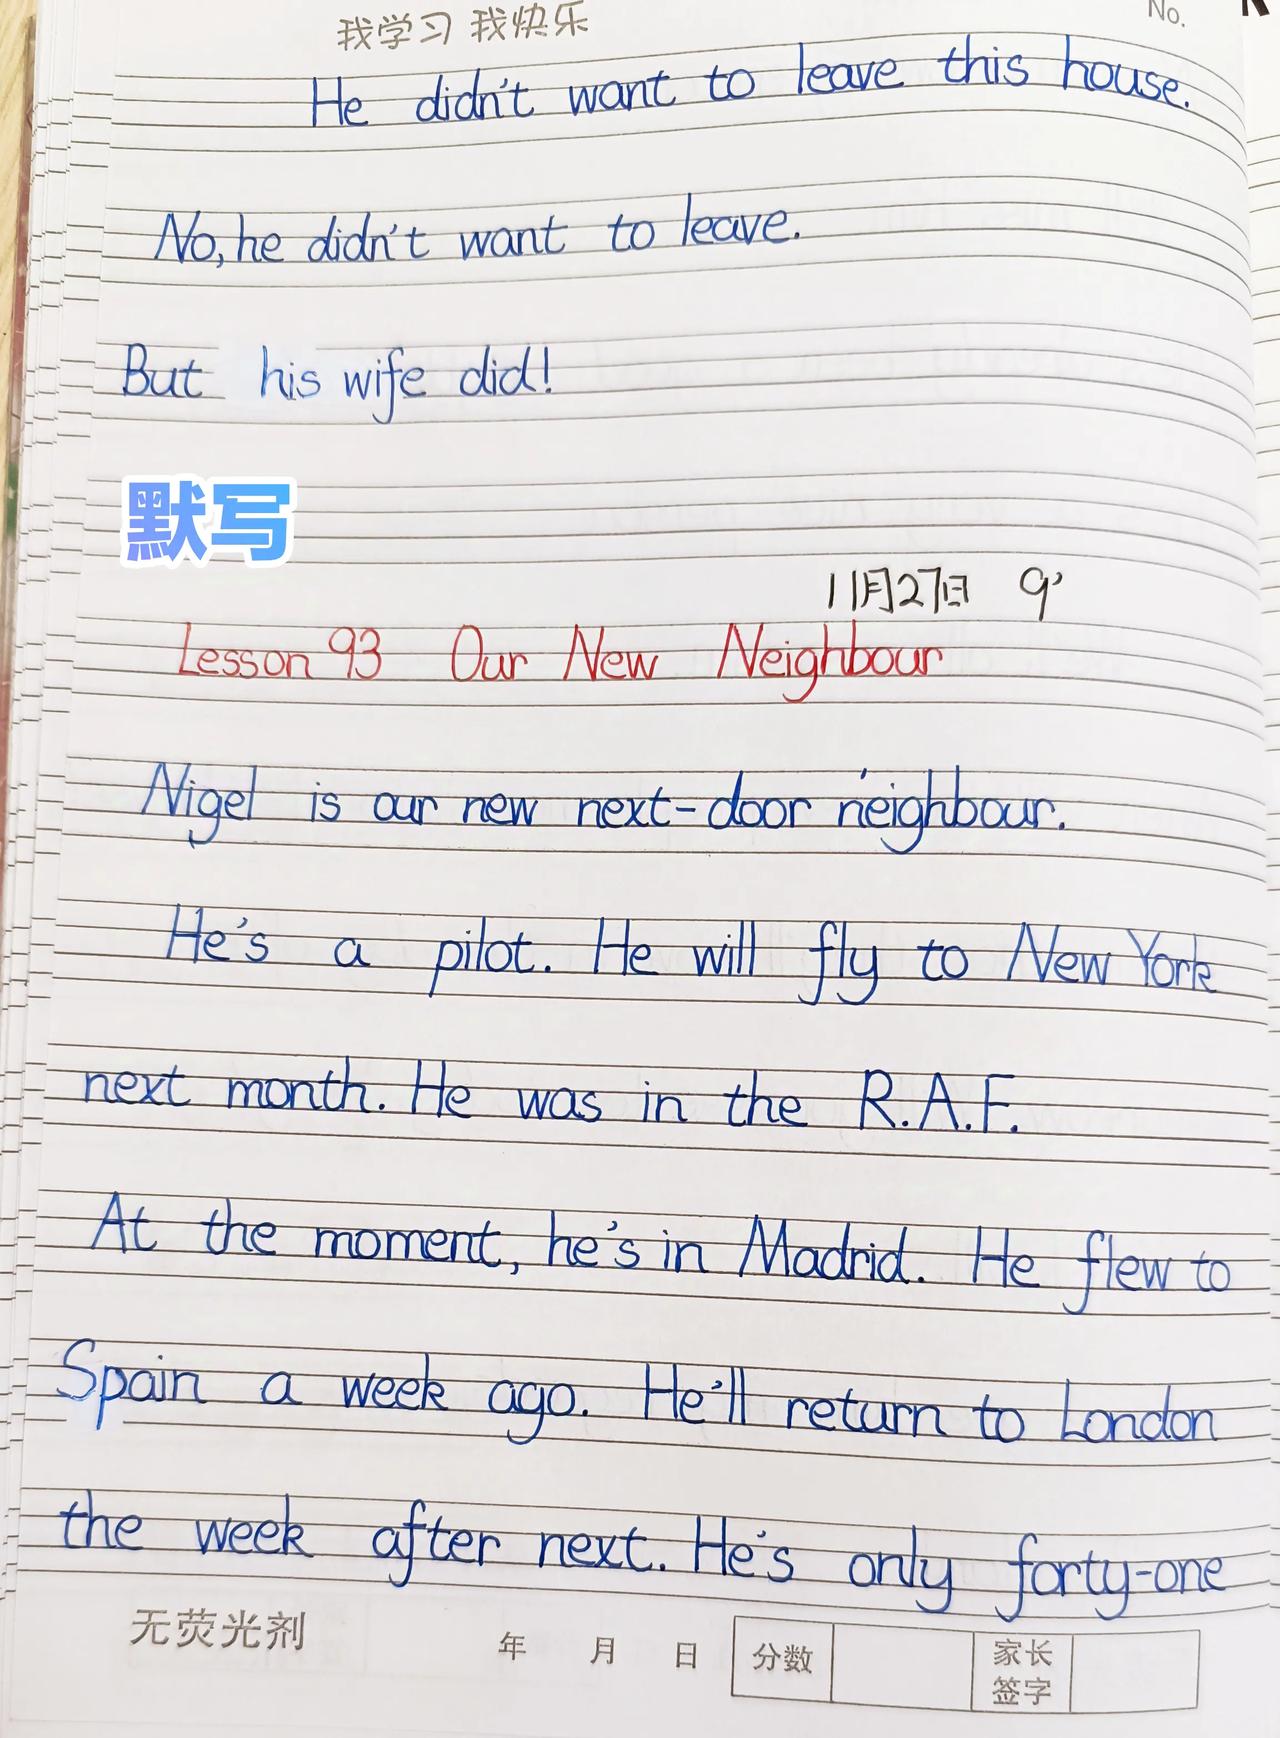 我学习 我快乐
No.
He didn't want to leave this house.
No, he didn't want to leave.
But his wife did!
默写
11月27日 9'
Lesson 93 Our New Neighbour
Nigel is our new next-door neighbour.
He's a pilot. He will fly to New York
next month. He was in the R.A.F.
At the moment, he's in Madrid. He flew to
Spain a week ago. He'll return to London
the week after next. He's only forty-one
无荧光剂 年 月 日 分数 家长签字